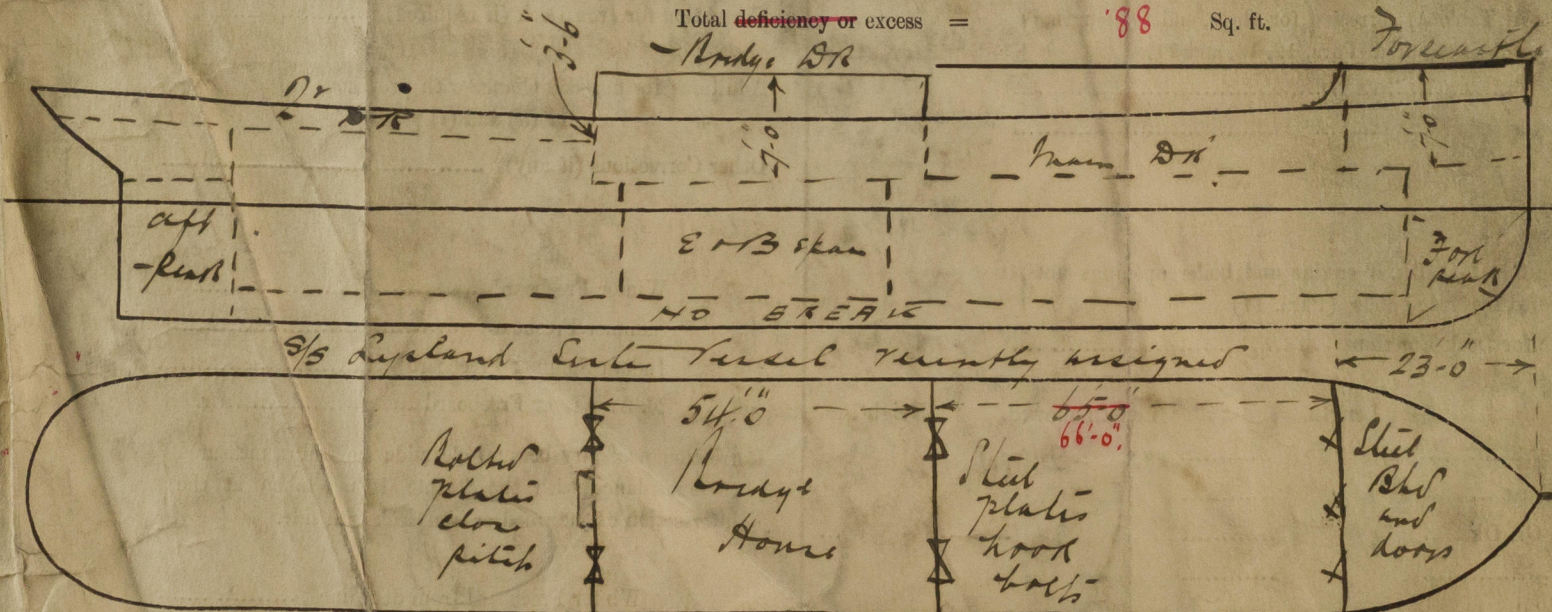 Total deficiency or excess = ·88 Sq. ft.
3'-6"
Bridge DK
Forecastle
DK
7'-0"
7'-0"
Main DK
aft
peak
E & B space
Fore
peak
NO BREAK
S/S Sister Vessel recently assigned
23'-0"
54'-0"
65'-0"
66'-0"
Bolted
plates
close
pitch
Bridge
House
Steel
plates
hook
bolts
Steel
Bhd
and
doors